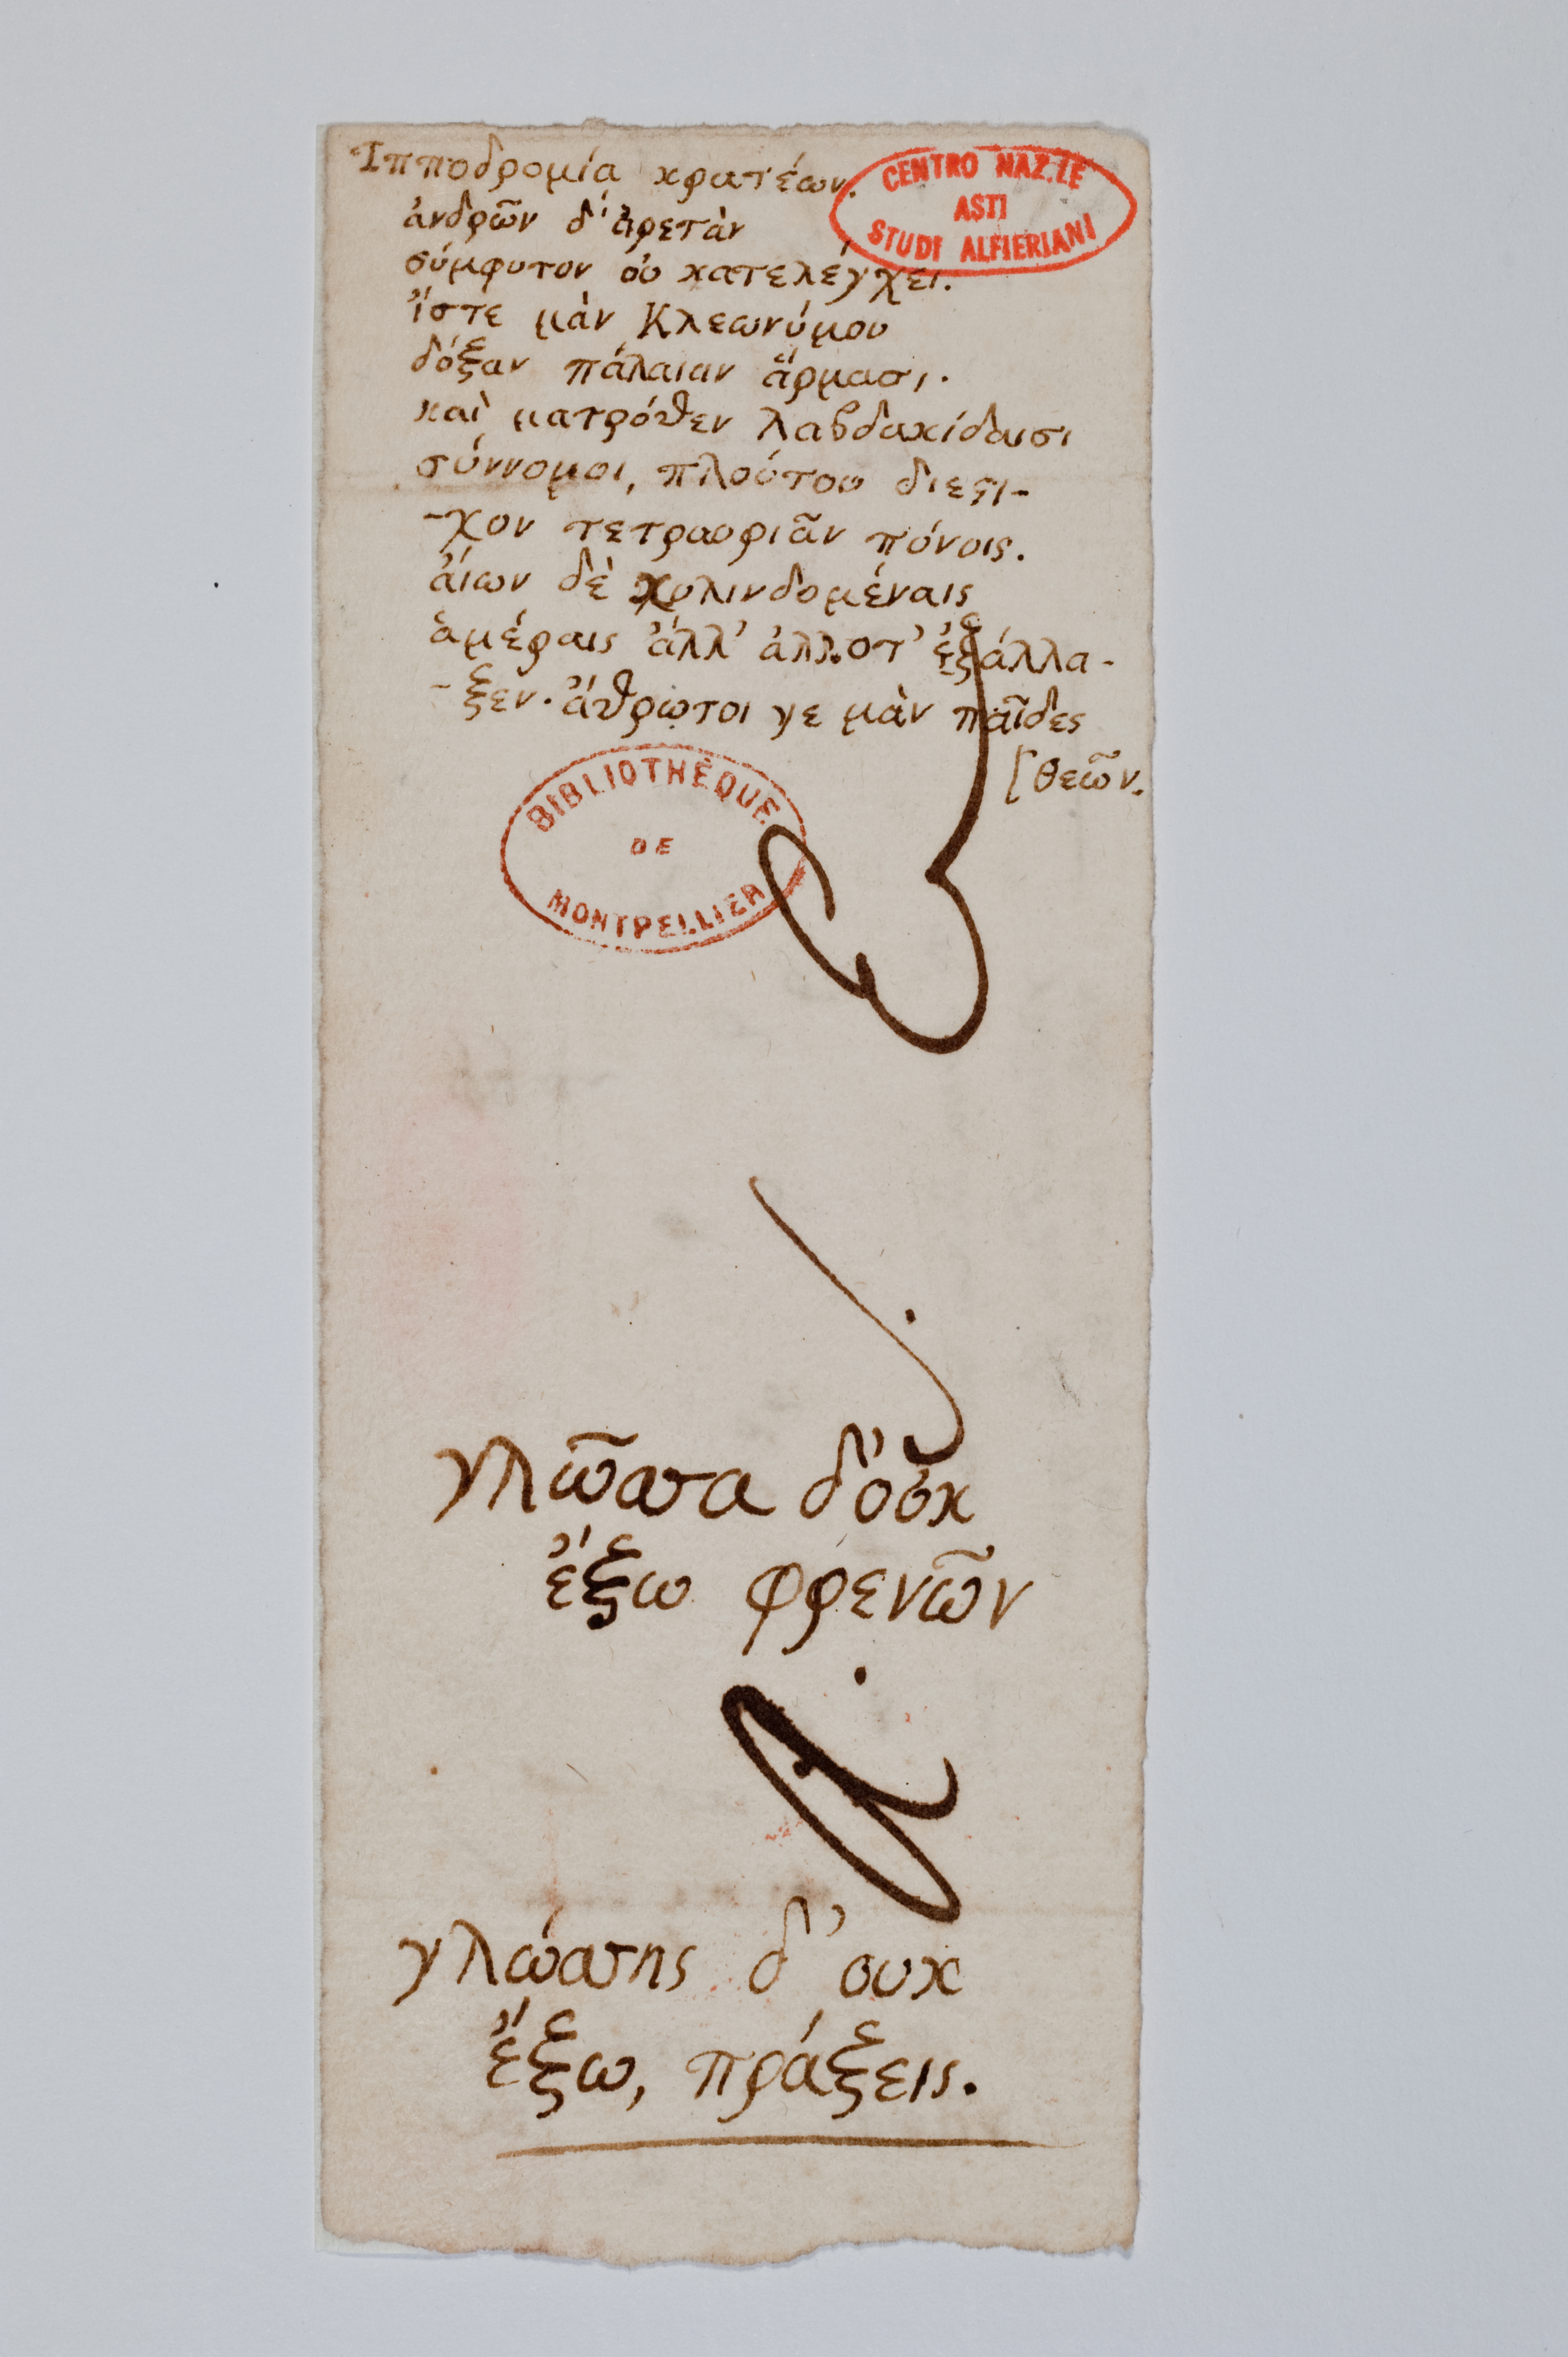 Ἱπποδρομία κρατέων.
CENTRO NAZ.LE
ASTI
STUDI ALFIERIANI
ἀνδρῶν δ' ἀρετὰν
σύμφυτον οὐ κατελέγχει.
ἴστε μὰν Κλεωνύμου
δόξαν πάλαιαν ἅρμασι.
καὶ ματρόθεν λαβδακίδαισι
σύννομοι, πλούτου διεστι-
-χον τετραοριᾶν πόνοις.
ἀίων δὲ κυλινδομέναις
ἁμέραις ἄλλ' ἀλλοτ' ἐξάλλα-
-ξεν. ἄθρωτοι γε μὰν παῖδες
[θεῶν.
BIBLIOTHÈQUE
DE
MONTPELLIER
γλῶσσα δ'οὐκ
ἔξω φρενῶν
γλώσσης δ' ουκ
ἔξω, πράξεις.